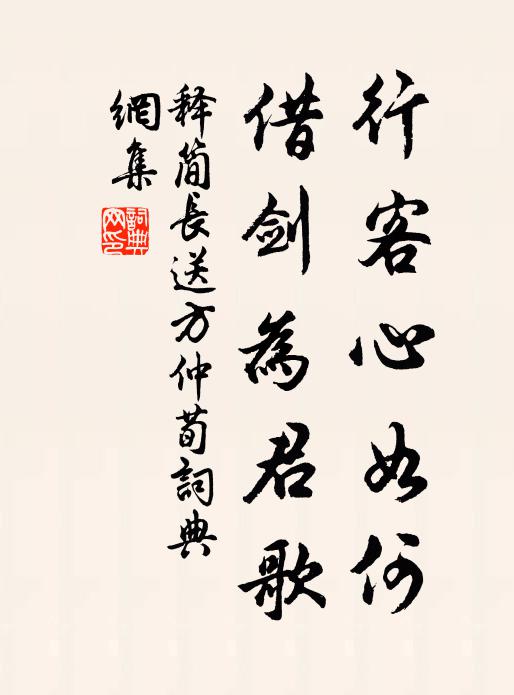 行客心如何
借剑為君歌
释简長送方仲荀詞典
網集
詞典
网印